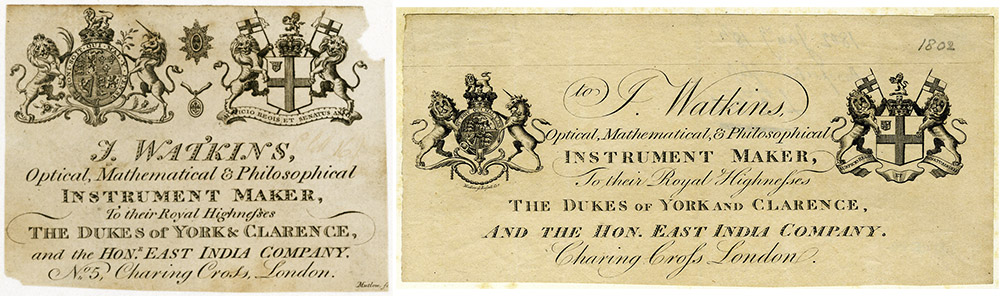 ICIO REGIS ET SENATUS AN
J. WATKINS,
Optical, Mathematical & Philosophical
INSTRUMENT MAKER,
To their Royal Highneſses
THE DUKES of YORK & CLARENCE,
and the HON.E EAST INDIA COMPANY.
No. 5, Charing Croſs, London.
Mutlow
1802
to J. Watkins,
Optical, Mathematical, & Philosophical
INSTRUMENT MAKER,
To their Royal Highneſses
THE DUKES OF YORK AND CLARENCE,
AND THE HON. EAST INDIA COMPANY.
Charing Croſs London.